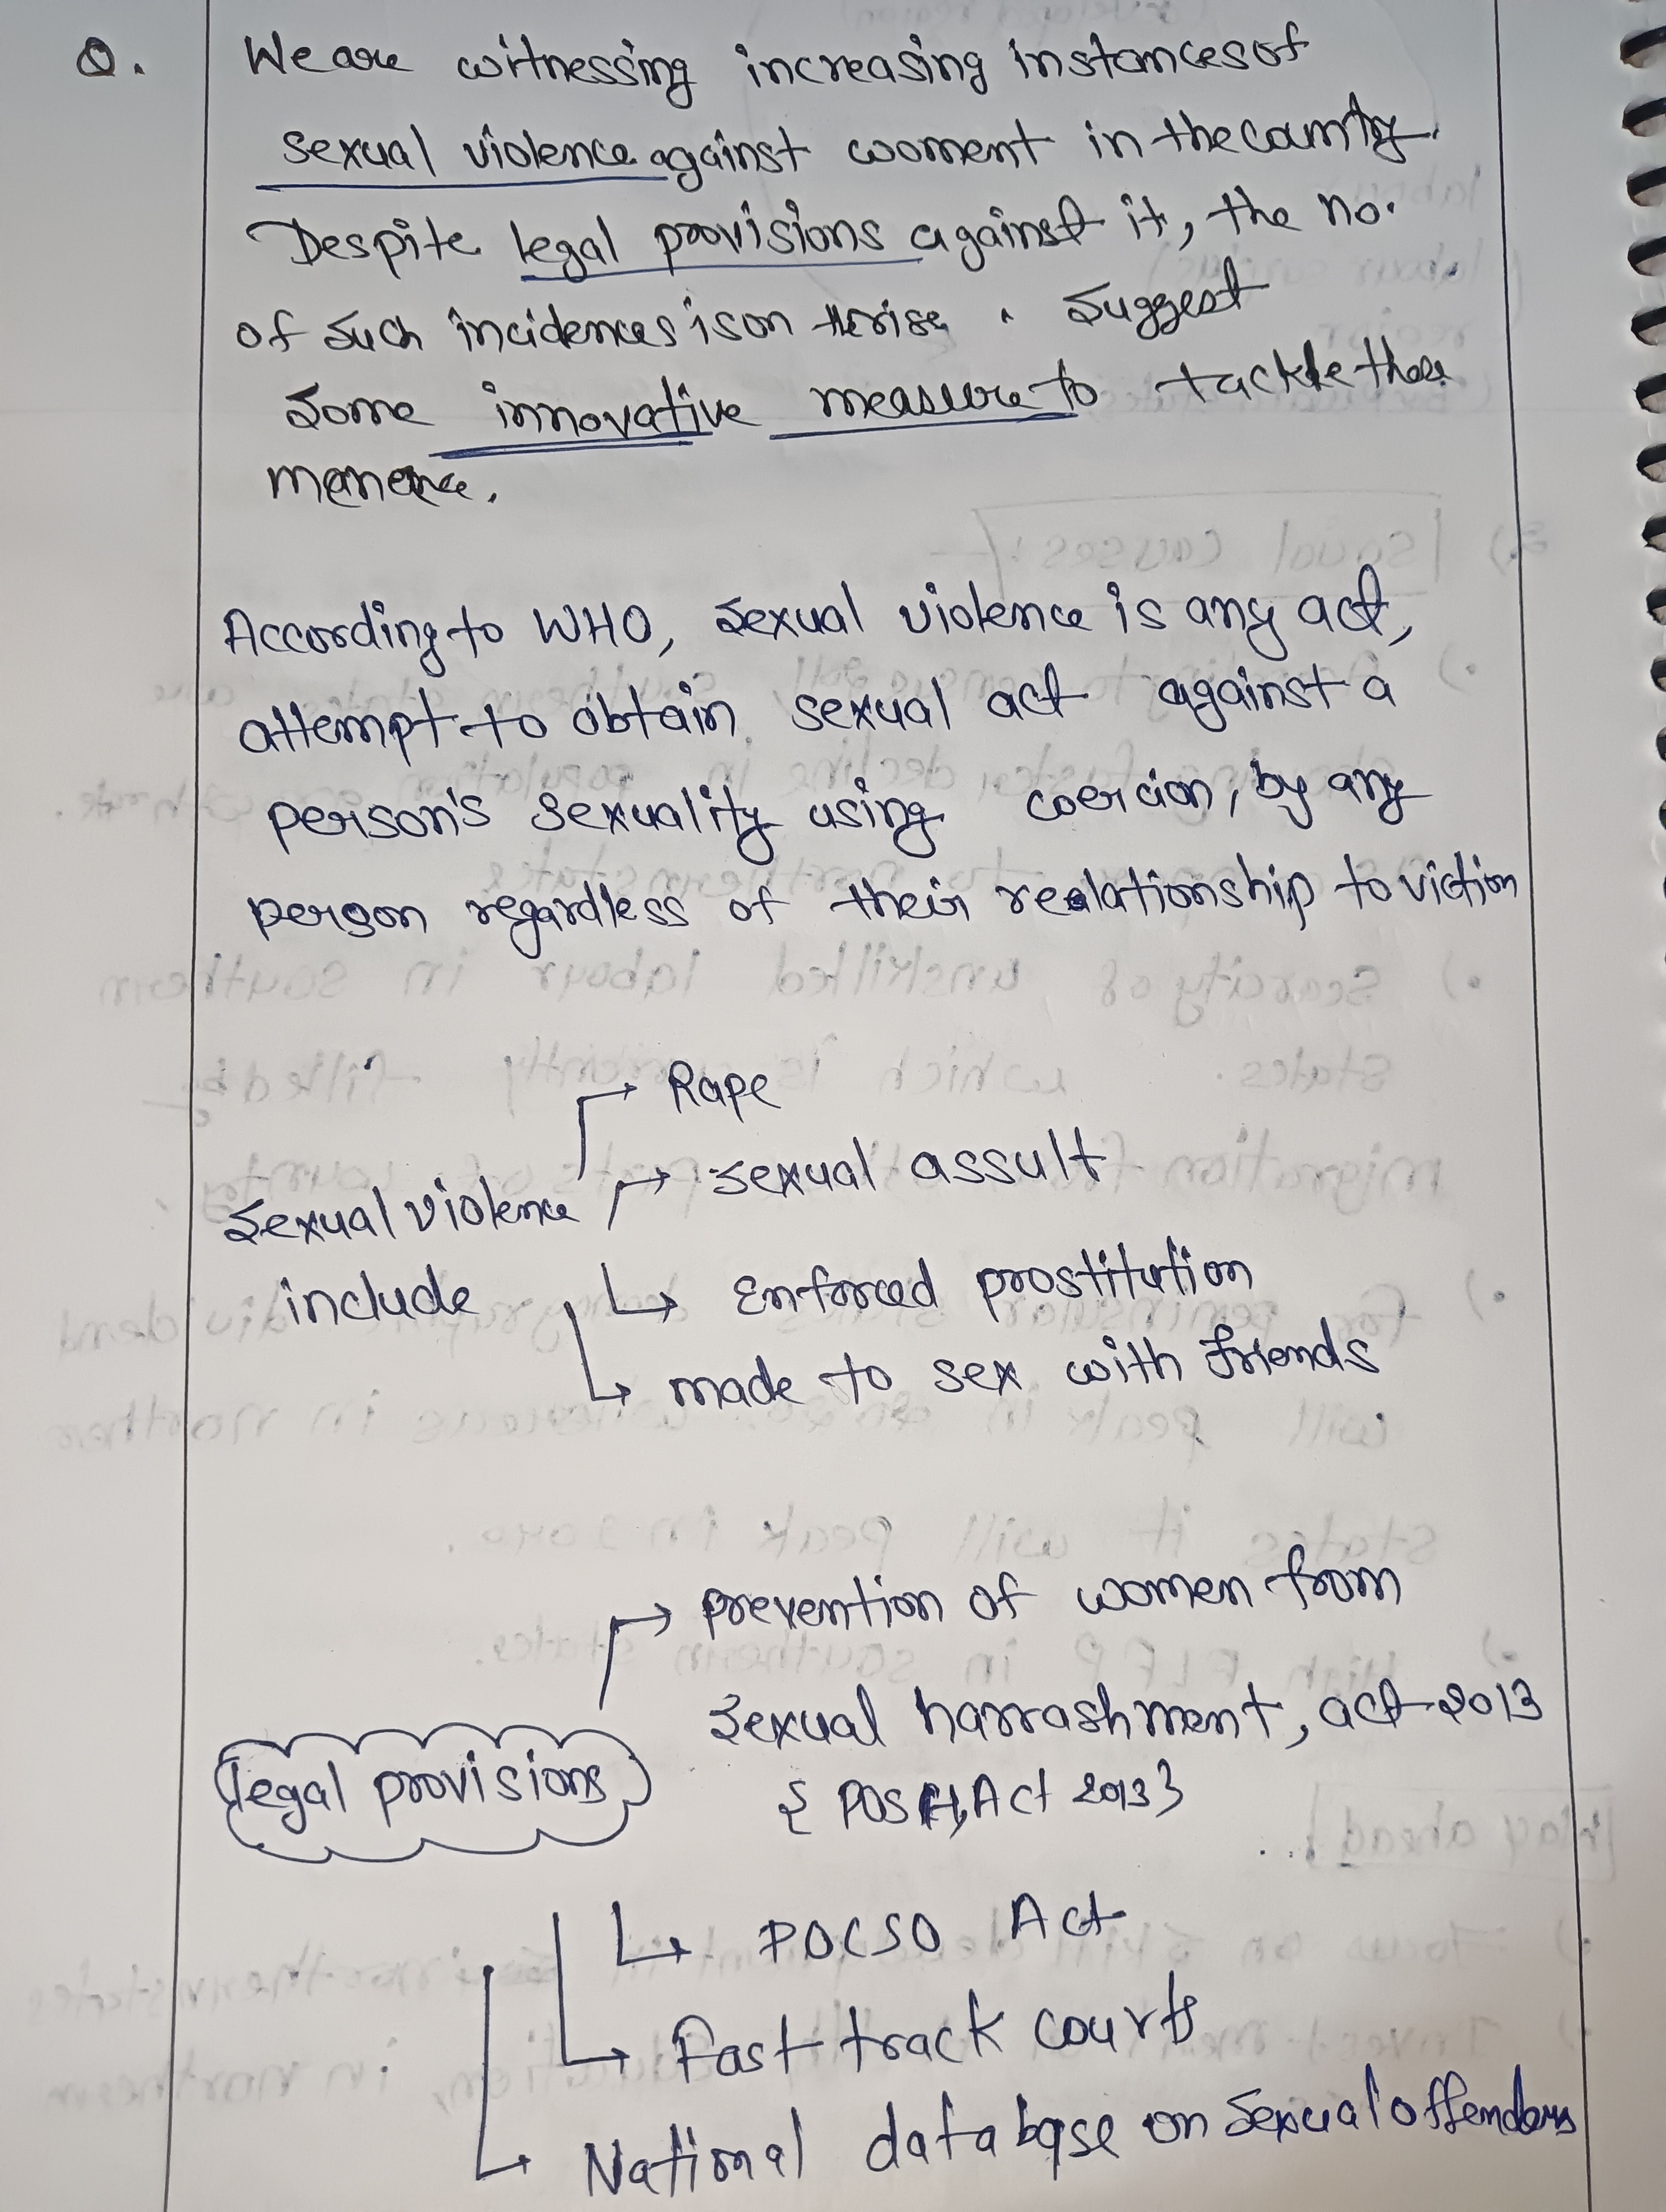 Q. We are witnessing increasing instances of
sexual violence against woment in the country.
Despite legal provisions against it, the no.
of such incidences is on the rise. Suggest
some innovative measure to tackle the
menance.
According to WHO, sexual violence is any act,
attempt to obtain sexual act against a
person's sexuality using coercion, by any
person regardless of their realationship to victim
→ Rape
→ sexual assult
Sexual violence
include
↳ Enforced prostitution
↳ made to sex with friends
→ prevention of women from
sexual harrashment, act-2013
legal provisions
{ POSH, Act 2013}
↳ POCSO Act
↳ Fast track courts
↳ National database on sexual offenders